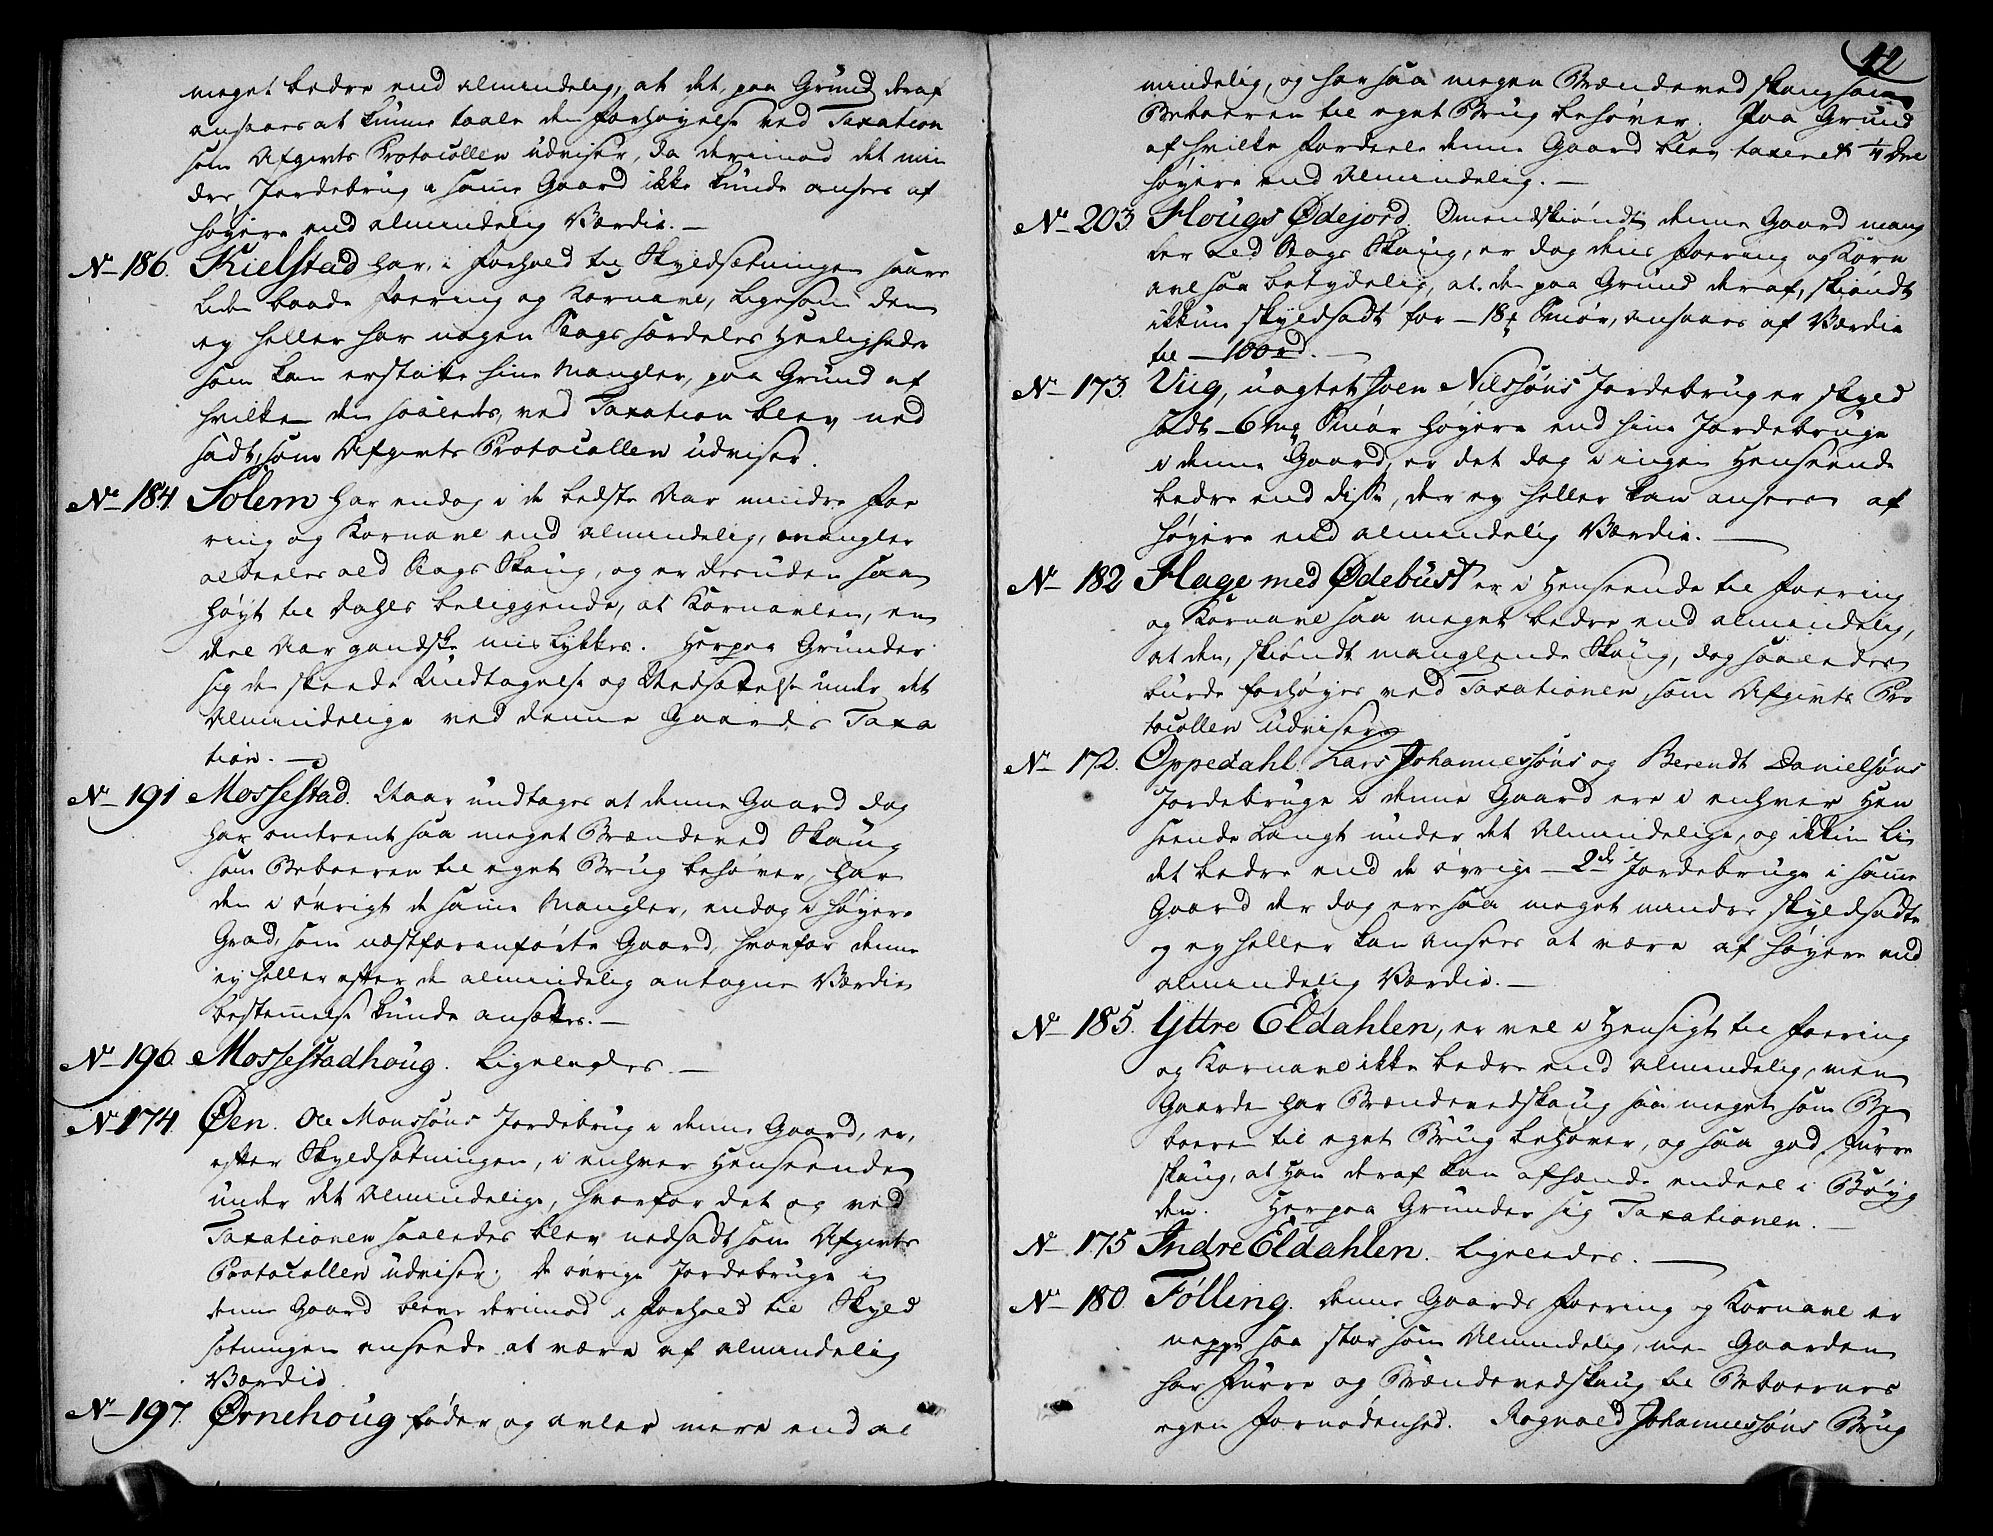 meget bedre end almindelig, at det, paa Grund deraf
ansaaes at kunne taale den forhøyelse ved Taxation
som Afgivts Protocollen udviser, da derimod det min
dre Jordebrug i samme Gaard ikke kunde ansees af
høyere end almindelig Værdie. —
No 186. Kielstad har, i forhold til Skyldsætningen saare
liden baade foering og Kornavl, ligesom den
ey heller har nogen Skogs fordeles Herligheder
som kan erstatte sine Mangler, paa Grund af
hvilke den saaledes, ved Taxation blev ned
sadt, som Afgivts Protocollen udviser.
No 184. Solem har endog i de bedste Aar mindre foe
ring og Kornavl end almindelig, mangler
aldeeles ald Slags Skoug, og er desuden saa
høyt til Dahls beliggende, at Kornavlen, en
deel Aar gandske mislykkes. Herpaa Grunder
sig den skeede Undtagelse og Nedsættelse under det
Almindelige ved denne Gaards Taxa
tion. —
No 191 Mossestad. Naar undtages at denne Gaard dog
har omtrent saa meget Brændeved Skoug
som Beboeren til eget Brug behøver, har
den i øvrigt de samme Mangler, endog i høyere
Grad, som næstforanførte Gaard, hvorfor denne
ey heller efter den almindelig antagne Værdie
bestemmelse kunde ansættes. —
No 196. Mossestadhoug. Ligeledes —
No 174. Øen. Ole Monssøns Jordebrug i denne Gaard, er,
efter Skyldsætningen, i enhver Henseende
under det Almindelige, hvorfor det og ved
Taxationen saaledes blev nedsadt som Afgivts
Protocollen udviser; de øvrige Jordebruge i
denne Gaard bleve derimod i forhold til Skyld
sætningen anseede at være af almindelig
Værdie.
No 197. Ørnehoug føder og avler mere end al
42
mindelig, og har saa megen Brændeved skoug som
Beboeren til eget Brug behøver. Paa Grund
af hvilke fordeele denne Gaard blev taxeret 1/4 Deel
høyere end Almindelig. —
No 203. Hougs Ødejord. Omendskiøndt denne Gaard mang
ler ald Slags Skoug, er dog dens foering og Korn
avl saa betydelig, at den paa Grund deraf, skiøndt
ikkun skyldsadt for — 18 Smør, ansaaes af Værdie
til — 100 rd. —
No 173. Viig, uagtet Joen Nilssøns Jordebrug er skyld
sadt — 6 mg Smør høyere end sine Jordebruge
i denne Gaard, er det dog i ingen Henseende
bedre end disse, der ey heller kan ansees af
høyere end almindelig Værdie. —
No 182 Hage med Ødebust er i Henseende til foering
og Kornavl saa meget bedre end almindelig,
at den, skiøndt manglende Skoug, dog saaledes
burde forhøyes ved Taxationen, som Afgivts Pro
tocollen udviser.
No 172. Oppedahl. Lars Johannessøns og Berendt Danielsøns
Jordebruge i denne Gaard ere i enhver Hen
seende langt under det Almindelige, og ikkun li
det bedre end de øvrige — 2de Jordebruge i samme
Gaard der dog ere saa meget mindre skyldsadte
og ey heller kan ansees at være af høyere end
almindelig Værdie. —
No 185. Yttre Eldahlen, er vel i Hensigt til foering
og Kornavl ikke bedre end almindelig, men
Gaarden har Brændevedskoug saa meget som Be
boeren til eget Brug behøver, og saa god furre
skoug, at han deraf kan afhænde endeel i Bøyg
den. Herpaa Grunder sig Taxationen. —
No 175 Indre Eldahlen. Ligeledes. —
No 180. Følling. denne Gaards foering og Kornavl er
neppe saa stor som Almindelig, men Gaarden
har furre og Brændevedskoug til Beboernes
egen fornødenhed. Rognald Johannessøns Brug